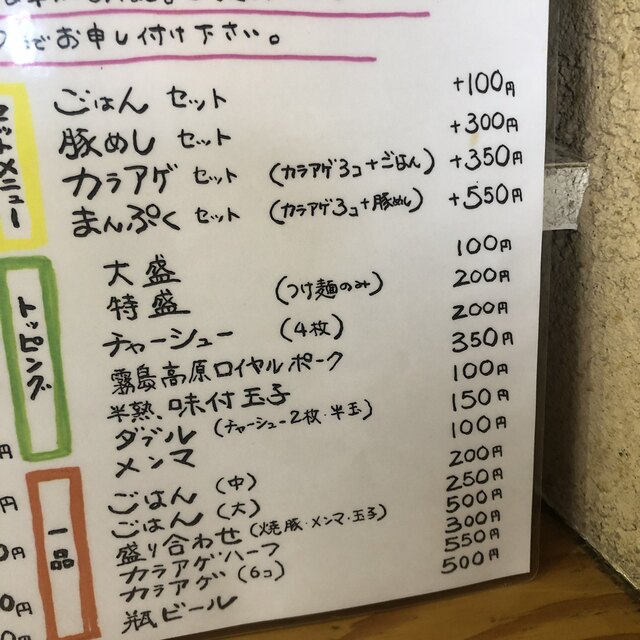 でお申し付け下さい。
セットメニュー
ごはん セット +100円
豚めし セット +300円
カラアゲ セット (カラアゲ3コ+ごはん) +350円
まんぷく セット (カラアゲ3コ+豚めし) +550円
トッピング
大盛 100円
特盛 (つけ麺のみ) 200円
チャーシュー (4枚) 200円
霧島高原ロイヤルポーク 350円
半熟味付玉子 100円
ダブル (チャーシュー2枚・半玉) 150円
メンマ 100円
一品
ごはん (中) 200円
ごはん (大) 250円
盛り合わせ (焼豚・メンマ・玉子) 500円
カラアゲハーフ 300円
カラアゲ (6コ) 550円
瓶ビール 500円